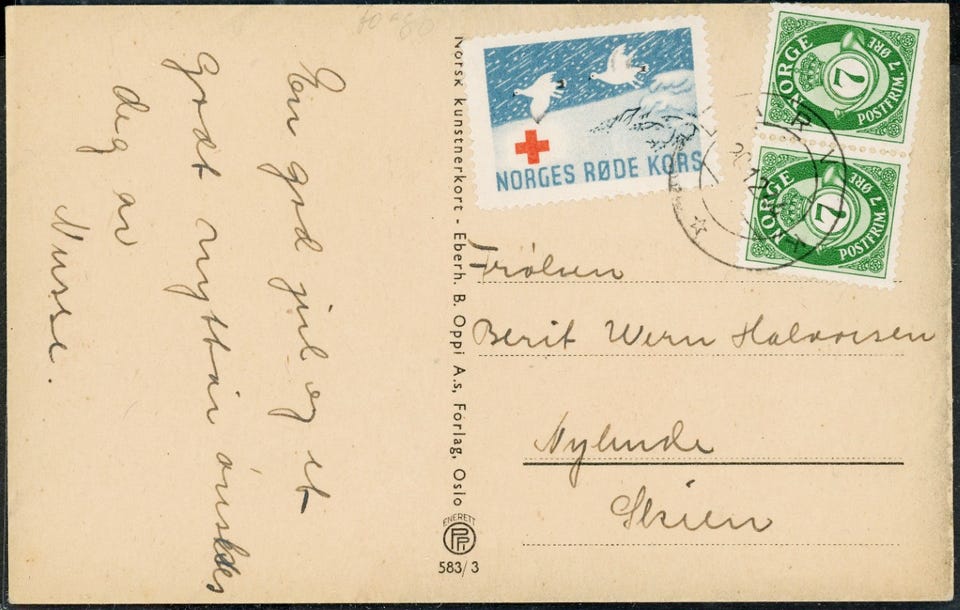 En god jul og et
Godt nyttår ønskes
deg av
Nusse.
Norsk kunstnerkort - Eberh. B. Oppi A.s, Forlag, Oslo
ENERETT
583/3
NORGES RØDE KORS
NORGE
7
POSTFRIM. 7 ØRE
NORGE
7
POSTFRIM. 7 ØRE
Frøken
Berit Wern Halvorsen
Nylende
Skien